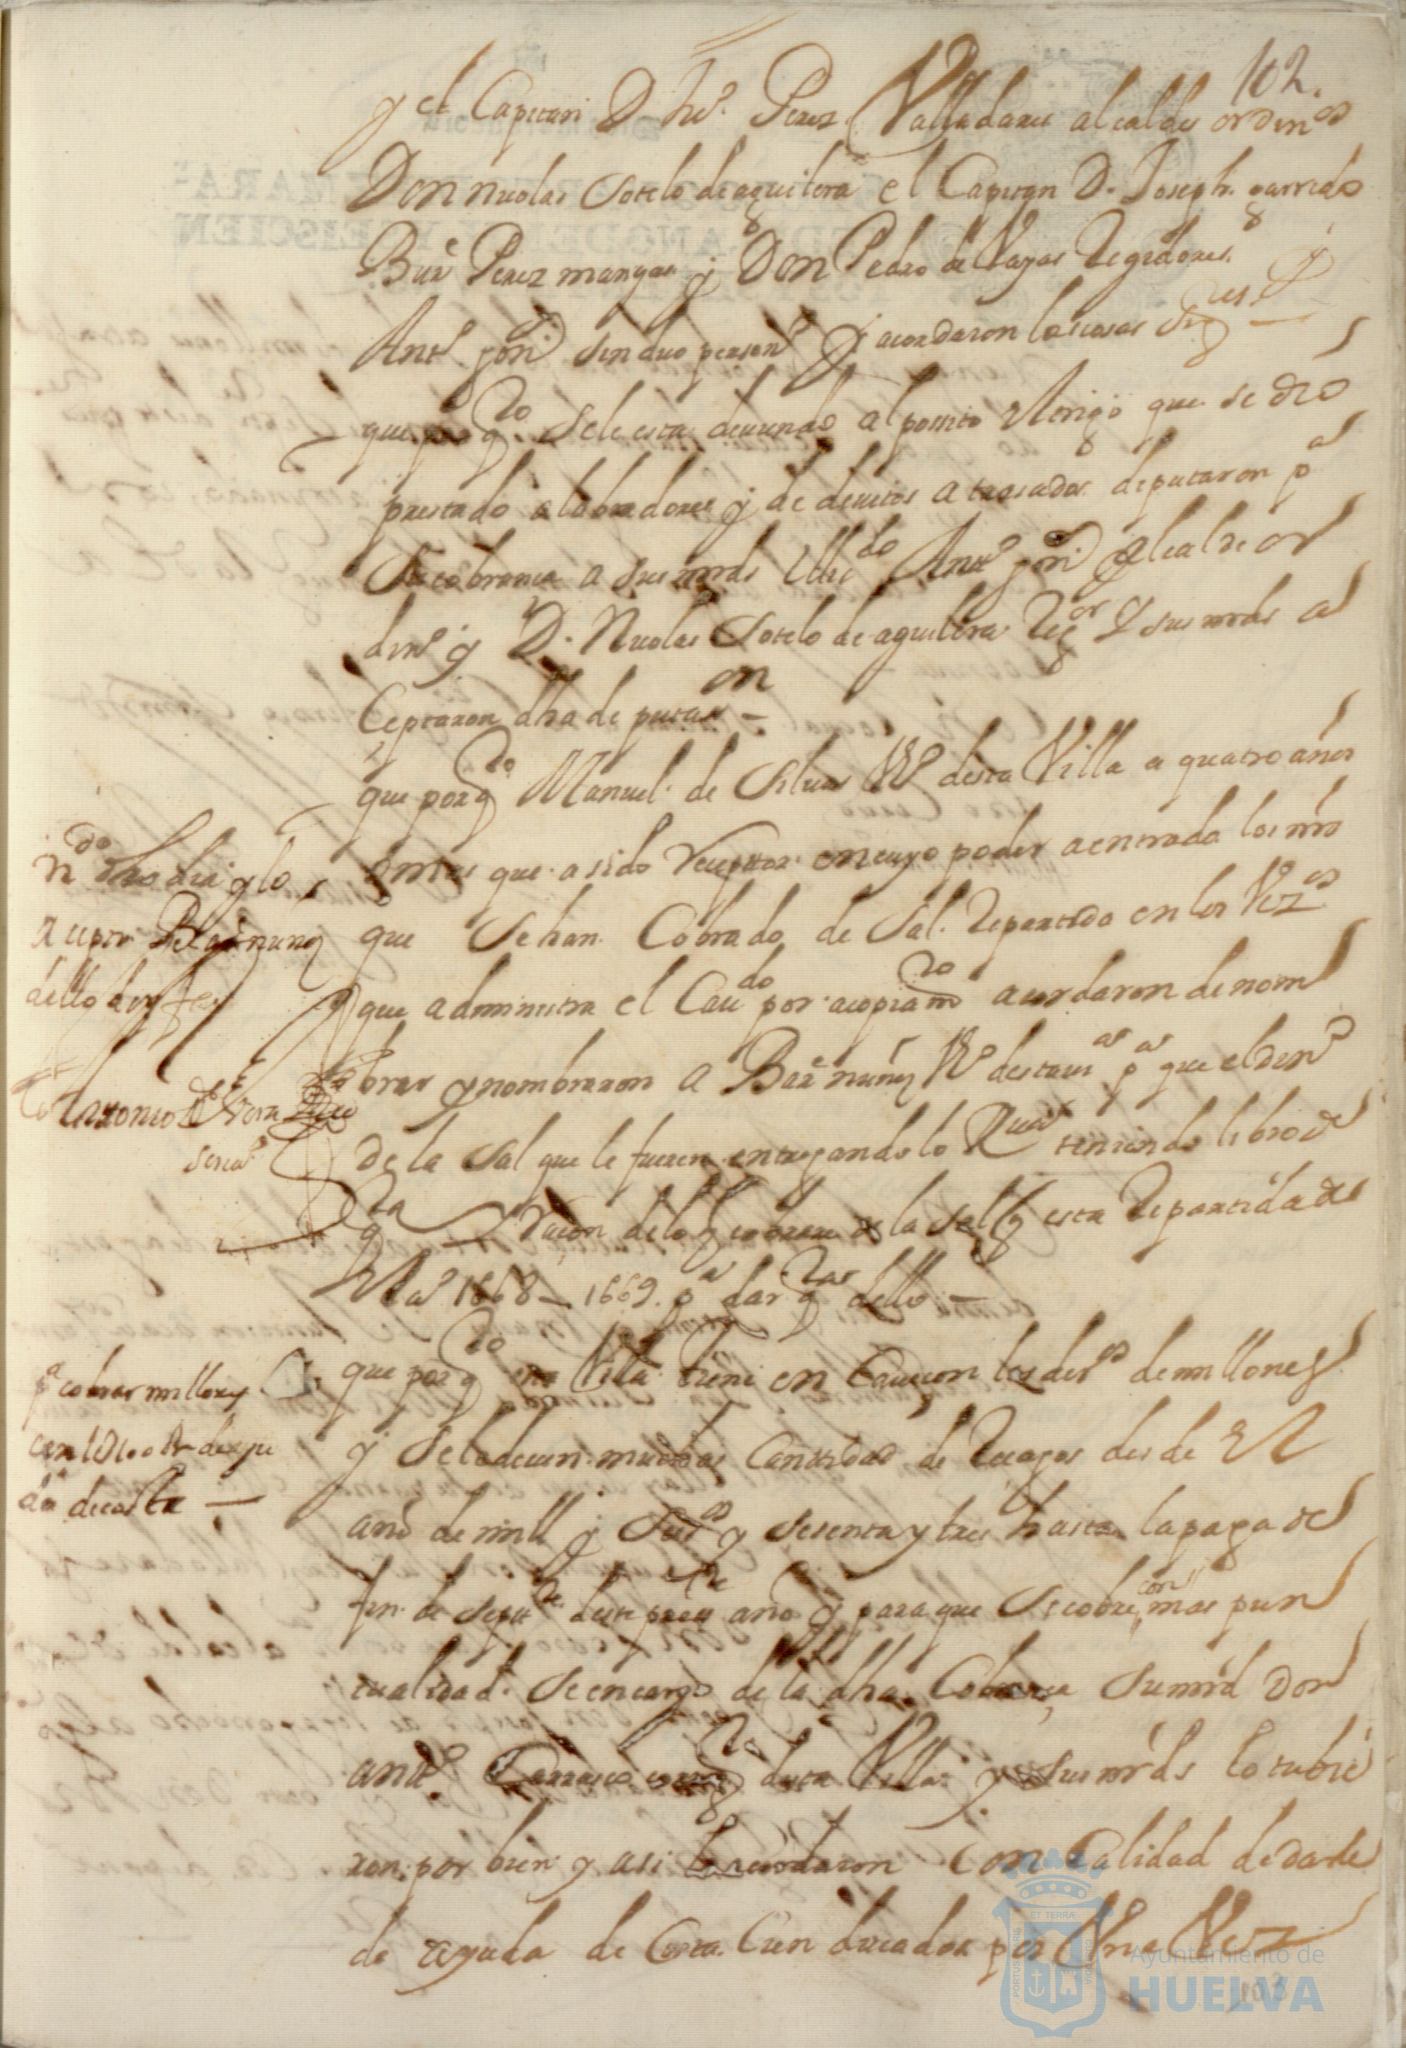 102.
y el Capitan D Ju.º Perez Valladares alcaldes ordin.os
Don nicolas Sotelo de aguilera el Capitan D. Joseph garrido
Bar.e Perez mangas y Don Pedro de Vayas Regidores
Ant.º jph sindico person.º y acordaron las cosas sig.tes
que por q.to se le esta deviendo al posito el trigo que se dio
prestado a labradores y de devitos atrasados deputaron p.a
Su cobranza a sus mrds Ant.º alcalde or
din.º y D. Nicolas Sotelo de aguilera Reg.or y sus mrds a
ceptaron dha deputasi on
que por q.to Manuel de Silva V.º desta Villa a quatro años
o mas que a sido receptor en cuyo poder a entrado los mrs
que Se han Cobrado de Sal Repartido en los Vez.os
y que administra el Cav.do por acopiam.to acordaron de nom
brar y nombraron a Bar.e nuñez V.º desta v.a p.a que el din.º
de la Sal que le fueren entregando lo Reciva teniendo libro de
q.ta y Racon de lo q cobrare de la Sal q esta Repartida de
1668 - 1669. p.a dar q.tas dello
que por q.to esta Villa tiene en Caveçon los der.os de millones
y Se le deven muchas Cantidad de Reçagos desde el
año de mill y Seis.os y sesenta y tres hasta la paga de
fin de Septi.re deste pres.te año y para que Se cobre con mas pun
tualidad Se encargo de la dha Cobrança Su mrd Don
ant.º Carrasco correg.or desta Villa y sus mrds lo tubie
ron por bien y asi lo acordaron Con Calidad de darle
de ayuda de Costa Cien ducados por Una Vez
n.do dho dia y lo
a ceptó Bar.e nunez
dello doy fee
Antonio de Vera
scriv.º
p.a cobrar millones
da de costa
PORTUS MARIS ET TERRAE CUSTODIA
Ayuntamiento de
HUELVA
103